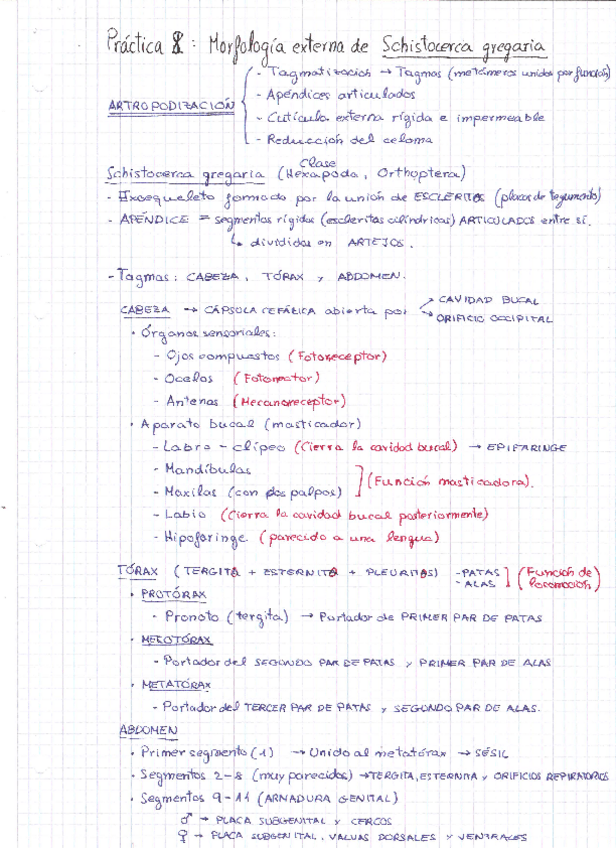 Práctica 1: Morfología externa de Schistocerca gregaria
- Tagmatización → Tagmas (metámeros unidos por función)
- Apéndices articulados
ARTROPODIZACIÓN
- Cutícula externa rígida e impermeable
- Reducción del celoma
Clase
Schistocerca gregaria (Hexapoda, Orthoptera)
- Exoesqueleto formado por la unión de ESCLERITOS (placas de tegumento)
- APÉNDICE = segmentos rígidos (escleritos cilíndricos) ARTICULADOS entre sí.
↳ divididos en ARTEJOS.
- Tagmas: CABEZA, TÓRAX y ABDOMEN.
CABEZA → CÁPSULA CEFÁLICA abierta por → CAVIDAD BUCAL
→ ORIFICIO OCCIPITAL
• Órganos sensoriales:
- Ojos compuestos (Fotoreceptor)
- Ocelos (Fotorreactor)
- Antenas (Mecanoreceptor)
• Aparato bucal (masticador)
- Labro - clípeo (Cierra la cavidad bucal) → EPIFARINGE
- Mandíbulas
- Maxilas (con dos palpos) ] (Función masticadora).
- Labio (Cierra la cavidad bucal posteriormente)
- Hipofaringe (parecido a una lengua)
TÓRAX (TERGITA + ESTERNITA + PLEURITAS) - PATAS
- ALAS ] (Función de locomoción)
• PROTÓRAX
- Pronoto (tergita) → Portador de PRIMER PAR DE PATAS
• MESOTÓRAX
- Portador del SEGUNDO PAR DE PATAS y PRIMER PAR DE ALAS
• METATÓRAX
- Portador del TERCER PAR DE PATAS y SEGUNDO PAR DE ALAS.
ABDOMEN
• Primer segmento (1) → Unido al metatórax → SÉSIL
• Segmentos 2-8 (muy parecidos) → TERGITA, ESTERNITA y ORIFICIOS RESPIRATORIOS
• Segmentos 9-11 (ARMADURA GENITAL)
♂ → PLACA SUBGENITAL y CERCOS
♀ → PLACA SUBGENITAL, VALVAS DORSALES y VENTRALES